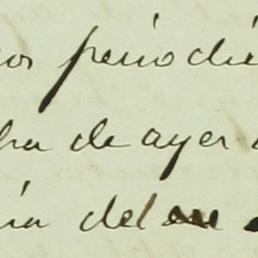 os periodi
ha de ayer
ía del